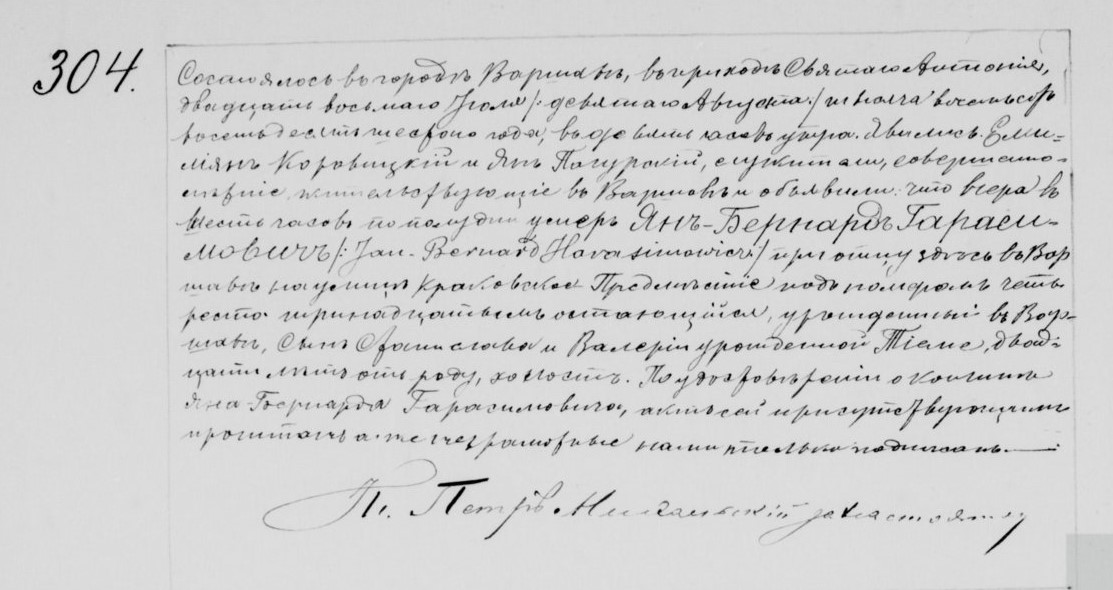 304.
Состоялось въ городѣ Варшавѣ, въ приходѣ Святаго Антонія,
двадцать восьмаго Іюля /: девятаго Августа :/ тысяча восемьсотъ
восемьдесятъ шестого года, въ девять часовъ утра. Явились Еми-
ліянъ Коровицкій и Янъ Погурскій, служители, совершенно-
лѣтніе жительствующіе въ Варшавѣ и объявили: что вчера въ
шесть часовъ по полудни умеръ Янъ-Бернардъ Гараси-
мовичъ /: Jan-Bernard Harasimowicz :/ при отцу здѣсь въ Вар
шавѣ на улицѣ Краковское Предмѣстіе подъ номеромъ четы
реста тринадцатымъ остающійся, урожденный въ Вар-
шавѣ, сынъ Станислава и Валеріи урожденной Тіеме, двад-
цати лѣтъ отъ роду, холостъ. По удостовѣреніи о кончинѣ
Яна-Бернарда Гарасимовича, актъ сей присутствующимъ
прочитанъ а же неграмотные нами только подписанъ.
Кс. Петръ за настоятеля